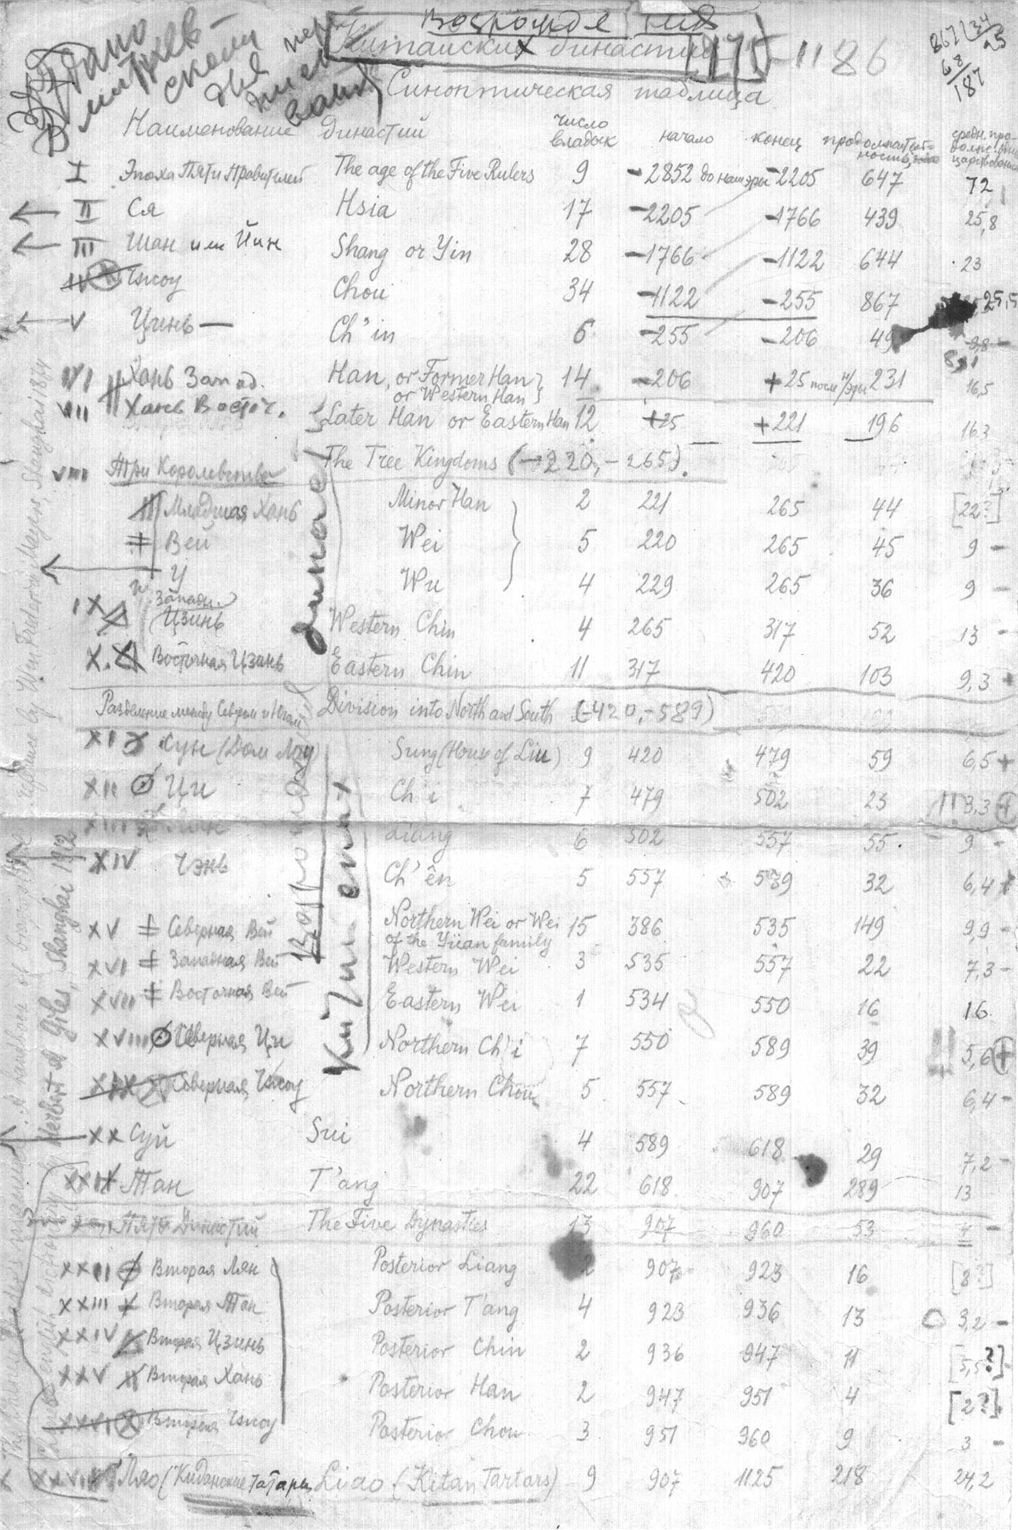 Возрождения
Китайских династий 1175-1186
867/34
68
187
Сдано
Синоптическая таблица
Наименование династий число владык начало конец продолжительность средн. продолж. царствования
I Эпоха Пяти Правителей The age of the Five Rulers 9 -2852 до наш эры -2205 647 72
II Ся Hsia 17 -2205 -1766 439 25,8
III Шан или Йин Shang or Yin 28 -1766 -1122 644 23
IV Чжоу Chou 34 -1122 -255 867 25,5
V Цинь — Ch'in 6 -255 -206 49
VI Хань Запад. Han, or Former Han or Western Han 14 -206 +25 после н/эры 231 16,5
VII Хань Восточ. Later Han or Eastern Han 12 +25 +221 196 16,3
VIII Три Королевства The Tree Kingdoms (-220,-265).
Младшая Хань Minor Han 2 221 265 44 [22?]
Вей Wei 5 220 265 45 9 -
У Wu 4 229 265 36 9 -
IX Западн. Цзинь Western Chin 4 265 317 52 13 -
X. Восточная Цзинь Eastern Chin 11 317 420 103 9,3 +
Разделение между Севером и Югом Division into North and South (-420,-589)
XI Сун (Дом Лю) Sung (House of Liu) 9 420 479 59 6,5 +
XII Ци Ch'i 7 479 502 23 3,3 +
XIII Лян Liang 6 502 557 55 9 -
XIV Чэнь Ch'ên 5 557 589 32 6,4 +
XV Северная Вей Northern Wei or Wei of the Yüan family 15 386 535 149 9,9 -
XVI Западная Вей Western Wei 3 535 557 22 7,3 -
XVII Восточная Вей Eastern Wei 1 534 550 16 16
XVIII Северная Ци Northern Ch'i 7 550 589 39 5,6 +
XIX Северная Чжоу Northern Chou 5 557 589 32 6,4 -
XX Суй Sui 4 589 618 29 7,2 -
XXI Тан T'ang 22 618 907 289 13
Пять Династий The Five Dynasties 13 907 960 53 4 -
XXII Вторая Лян Posterior Liang 2 907 923 16 [8?]
XXIII Вторая Тан Posterior T'ang 4 923 936 13 3,2 -
XXIV Вторая Цзинь Posterior Chin 2 936 947 11 [5,5?]
XXV Вторая Хань Posterior Han 2 947 951 4 [2?]
XXVI Вторая Чжоу Posterior Chou 3 951 960 9 3 -
XXVII Ляо (Киданские татары Liao (Kitan Tartars) 9 907 1125 218 24,2
династий
Китая
by William Frederick Mayers, Shanghai 1874
Herbert A Giles, Shanghai 1912